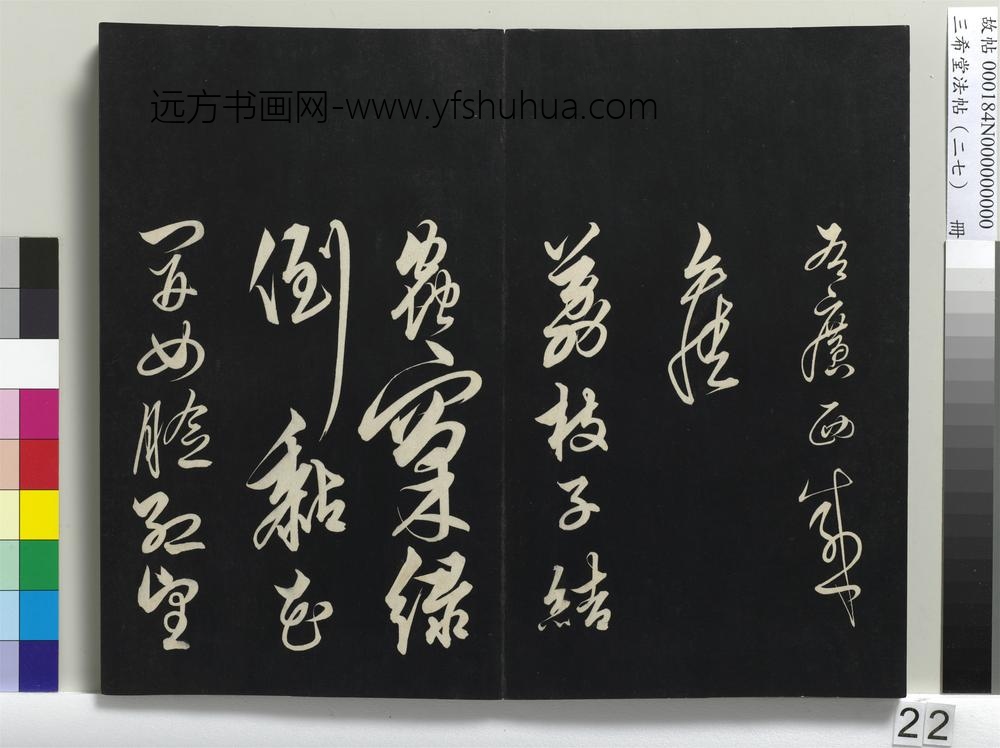 远方书画网-www.yfshuhua.com
故帖000184N000000000
三希堂法帖（二七） 冊
廣西
荔枝子結
蟲窠綠
倒黏花
開女臉紅望
22